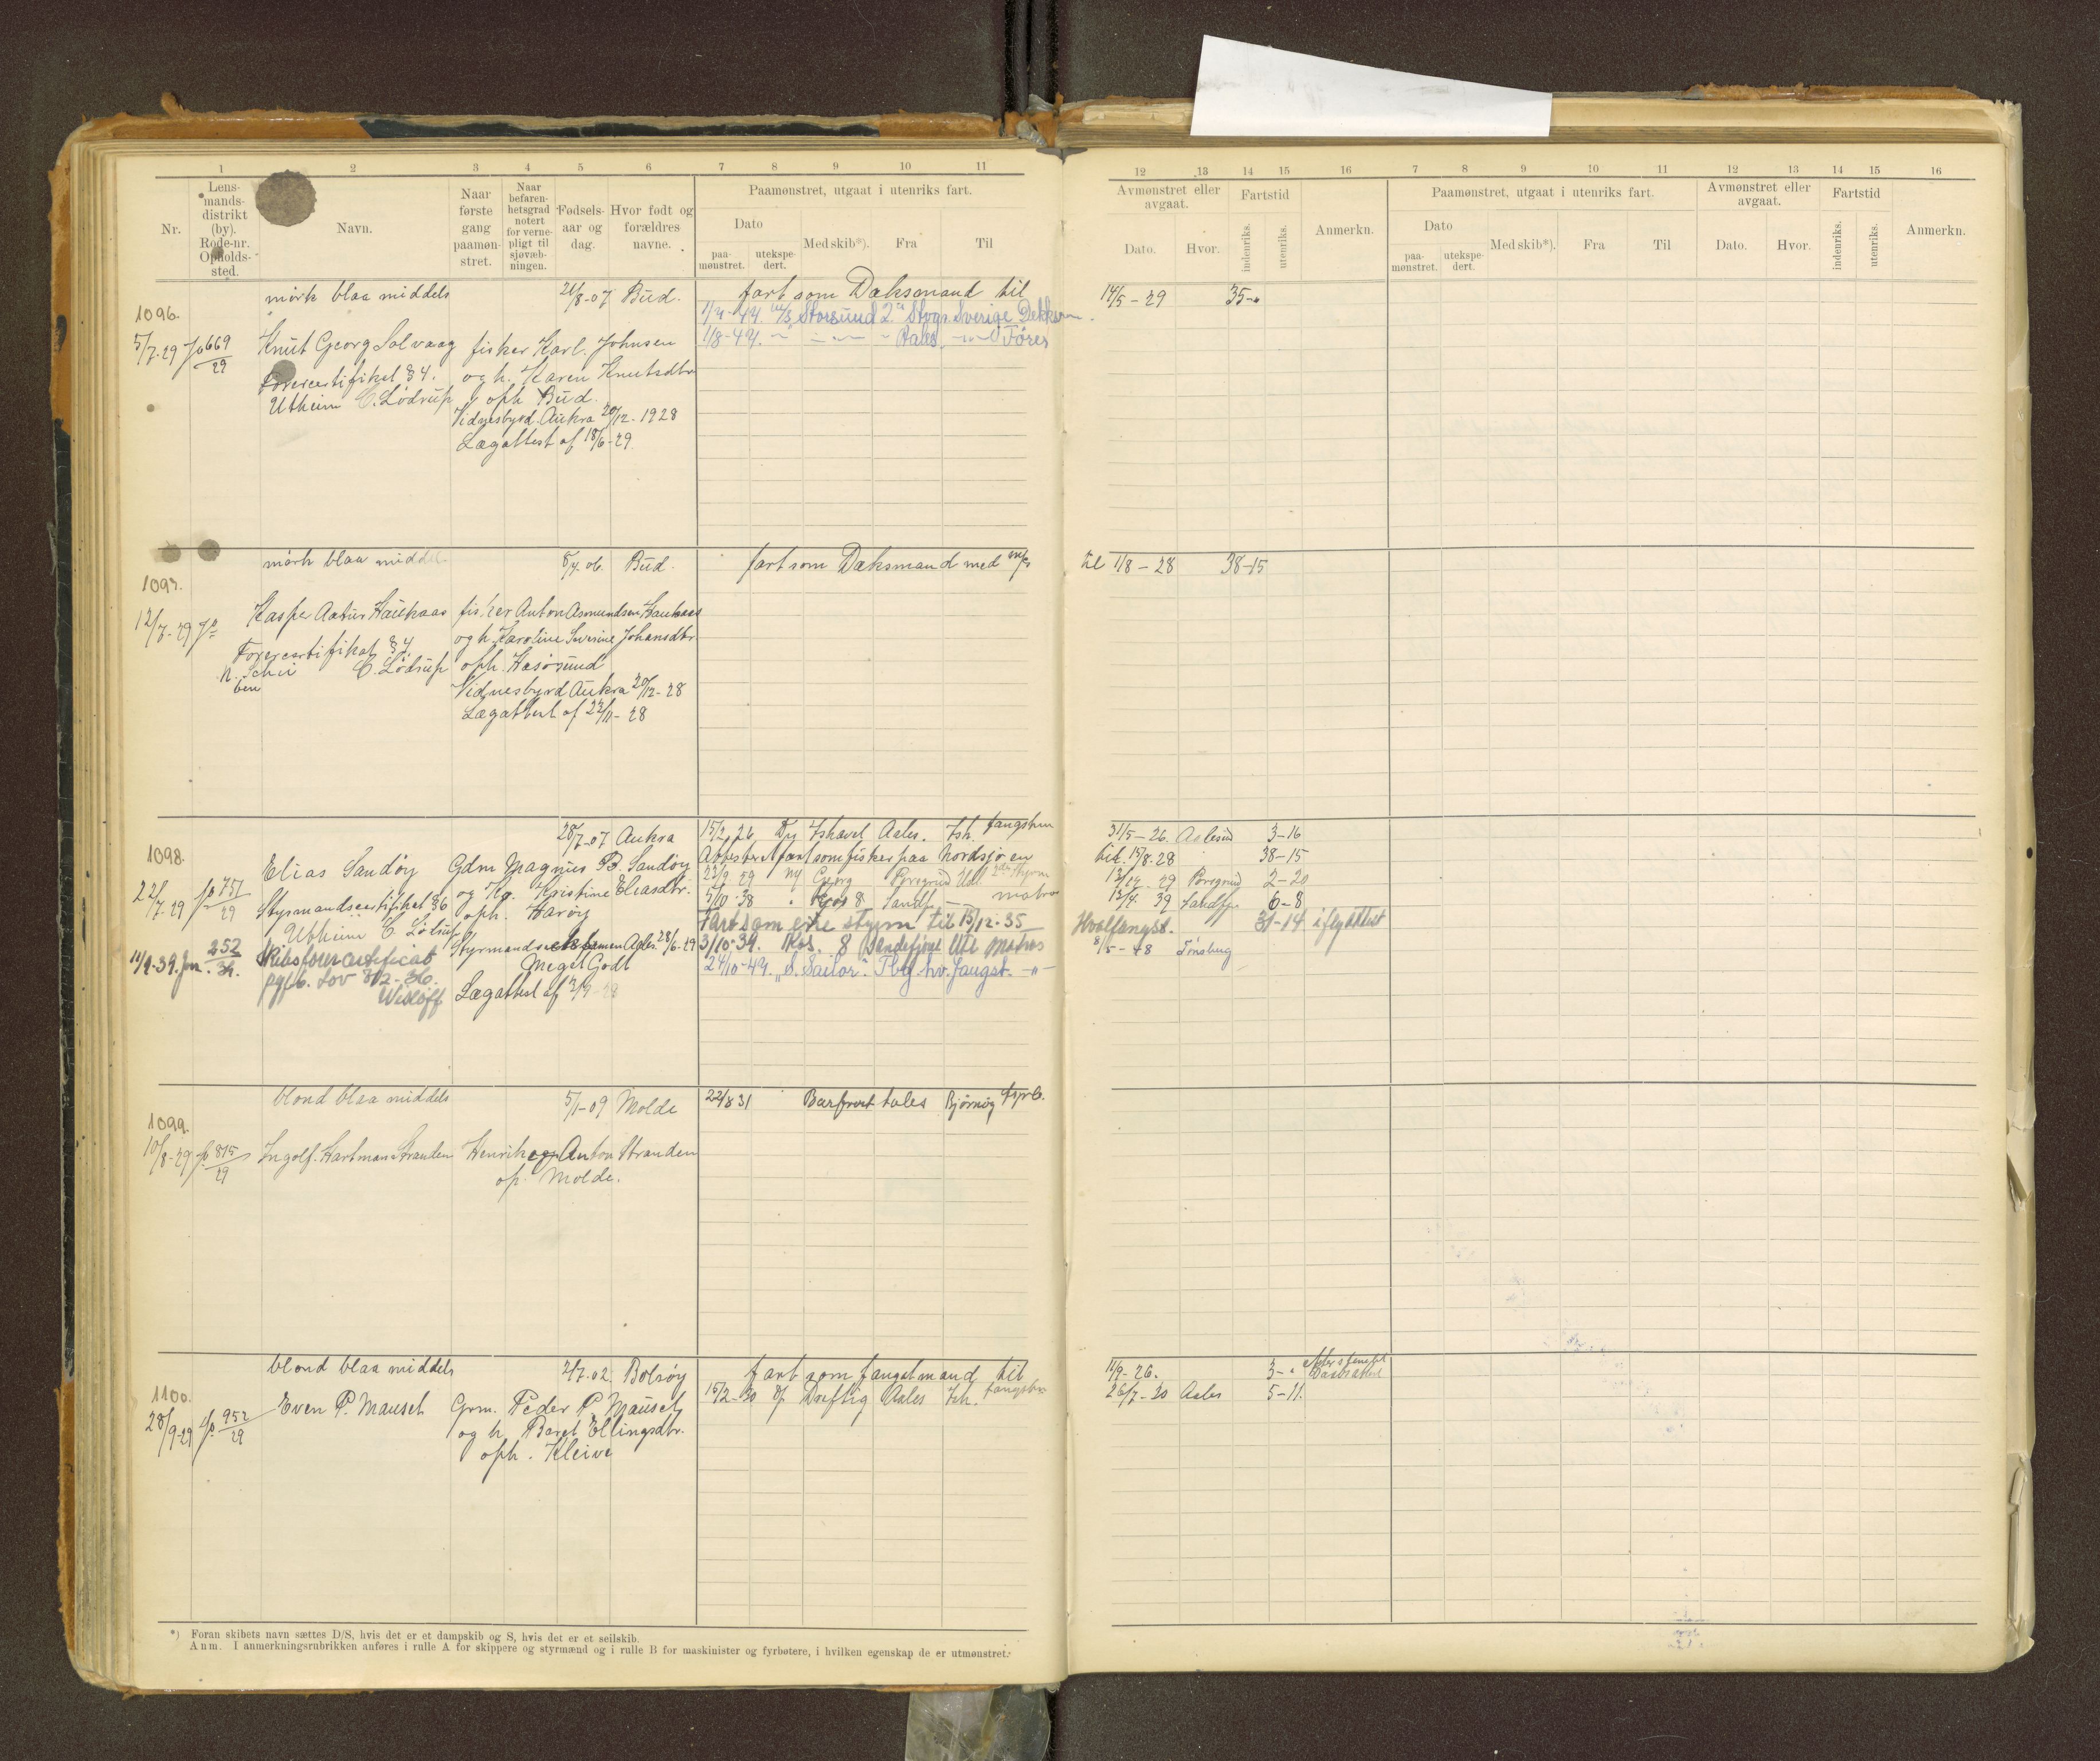 1 2 3 4 5 6 7 8 9 10 11
Nr. Lens-mands-distrikt (by). Rode-nr. Opholds-sted. Navn. Naar første gang paamøn-stret. Naar befaren-hetsgrad notert for verne-pligt til sjøvæb-ningen. Fødsels-aar og dag. Hvor født og forældres navne. Paamønstret, utgaat i utenriks fart.
Dato
paa-mønstret. utekspe-dert. Med skib*). Fra Til
mörk blaa middels 21/8-07 Bud. fart som Dæksmand til
1096. 1/4-44. m/s Storsund 2.
5/7-29 669/29 Knut Georg Solvaag fisker Karl. Johnsen 1/8-44. Fører
Førercertifikat §4. og h. Karen Knutsdtr
Utheim C. Lödrup oph Bud.
Vidnesbyrd. Aukra 20/12-1928
Lægattest af 18/6-29.
mörk blaa middel 5/4.06. Bud. fart som Dæksmand med m/s
1097.
12/7-29 Kasper Aatur Haukaas fisker Anton Asmundsen Haukaas
og h. Karoline Severine Johansdtr.
Førercertifikat §4.
C. Lödrup oph. Hasösund
Vidnesbyrd Aukra 20/12-28
Lægattest af 22/11-28
28/7-07 Aukra 15/2 26 Ishavet Aales. Ish. fangstm
1098. Attestert fart som fisker paa Nordsjøen
Elias Sandöy Gdm Magnus B. Sandöy 23/9 29 Georg Porsgrud Utl.
22/7-29 751/29 Styrmandscertifikat §6 og Hg. Kristine Eliasdtr. 5/10-38 Kos 8 Sandfj. matros
oph. Haröy Fart som styrm til 15/12-35
Utheim C. Lödrup Styrmandseksamen Aales. 28/6-29 3/10-39. Kos. 8 Sandefjord Utl Matros
11/9-39. 252/34. Skibsförercertificat Meget Godt 24/10-49. "S. Sailor" Tbg. hv. fangst. -"-
pgf 6. Lov 8/2-36.
Lægattest af
blond blaa middels 5/1-09 Molde 22/8 31 Barfrost Aales Bjørnøy fyrb.
1099.
10/8-29 815/29 Ingolf. Hartman Stranden Henrik og Anton Stranden
op. Molde.
blond blaa middels 2/7.02. Bolsöy fart som fangstmand til
1100. 15/2-30 Driftig Aales Ish. fangstm
28/9-29 952/29 Even P. Mauset Grm. Peder P. Mauset
og h. Beret Ellingsdtr.
oph. Kleive
*) Foran skibets navn sættes D/S, hvis det er et dampskib og S, hvis det er et seilskib.
Anm. I anmerkningsrubrikken anføres i rulle A for skippere og styrmænd og i rulle B for maskinister og fyrbøtere, i hvilken egenskap de er utmønstret.
12 13 14 15 16 7 8 9 10 11 12 13 14 15 16
Avmønstret eller avgaat. Fartstid Anmerkn. Paamønstret, utgaat i utenriks fart. Avmønstret eller avgaat. Fartstid Anmerkn.
Dato. Hvor. indenriks. utenriks. Dato paa-mønstret. utekspe-dert. Med skib*). Fra Til Dato. Hvor. indenriks. utenriks.
14/5-29 35-"
til 1/8-28 38-15
31/5-26. Aalesund 3-16
til. 15/8.28 38-15
29 Porsgrud 2-20
13/4. 39 Sandfj. 6-8
Hvalfangst. 31-14
8/5-48 Tönsberg
11/9-26. 3-"
26/7-30 Aales 5-11.